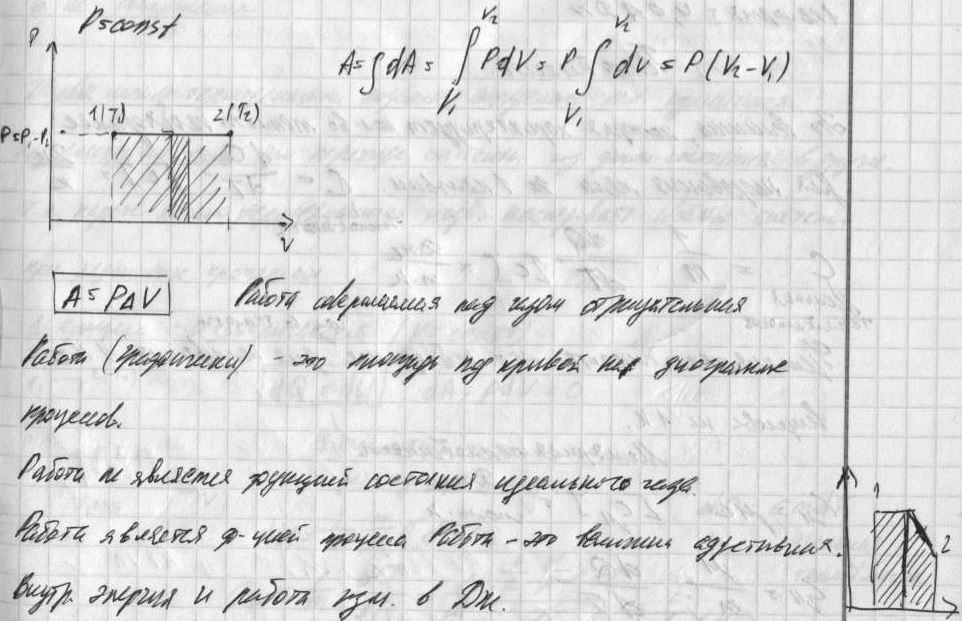 P=const
A=∫dA= ∫ PdV= P ∫ dv = P(V₂-V₁)
V₂ V₂
V₁ V₁
P
1(T₁) 2(T₂)
P=P₁-P₂
V
A=PΔV Работа совершаемая над газом отрицательная
Работа (графически) - это площадь под кривой на диаграмме
процессов.
Работа не является функцией состояния идеального газа.
Работа является ф-цией процесса Работа - это величина аддетивная.
Внутр. энергия и работа изм. в Дж.
1
2